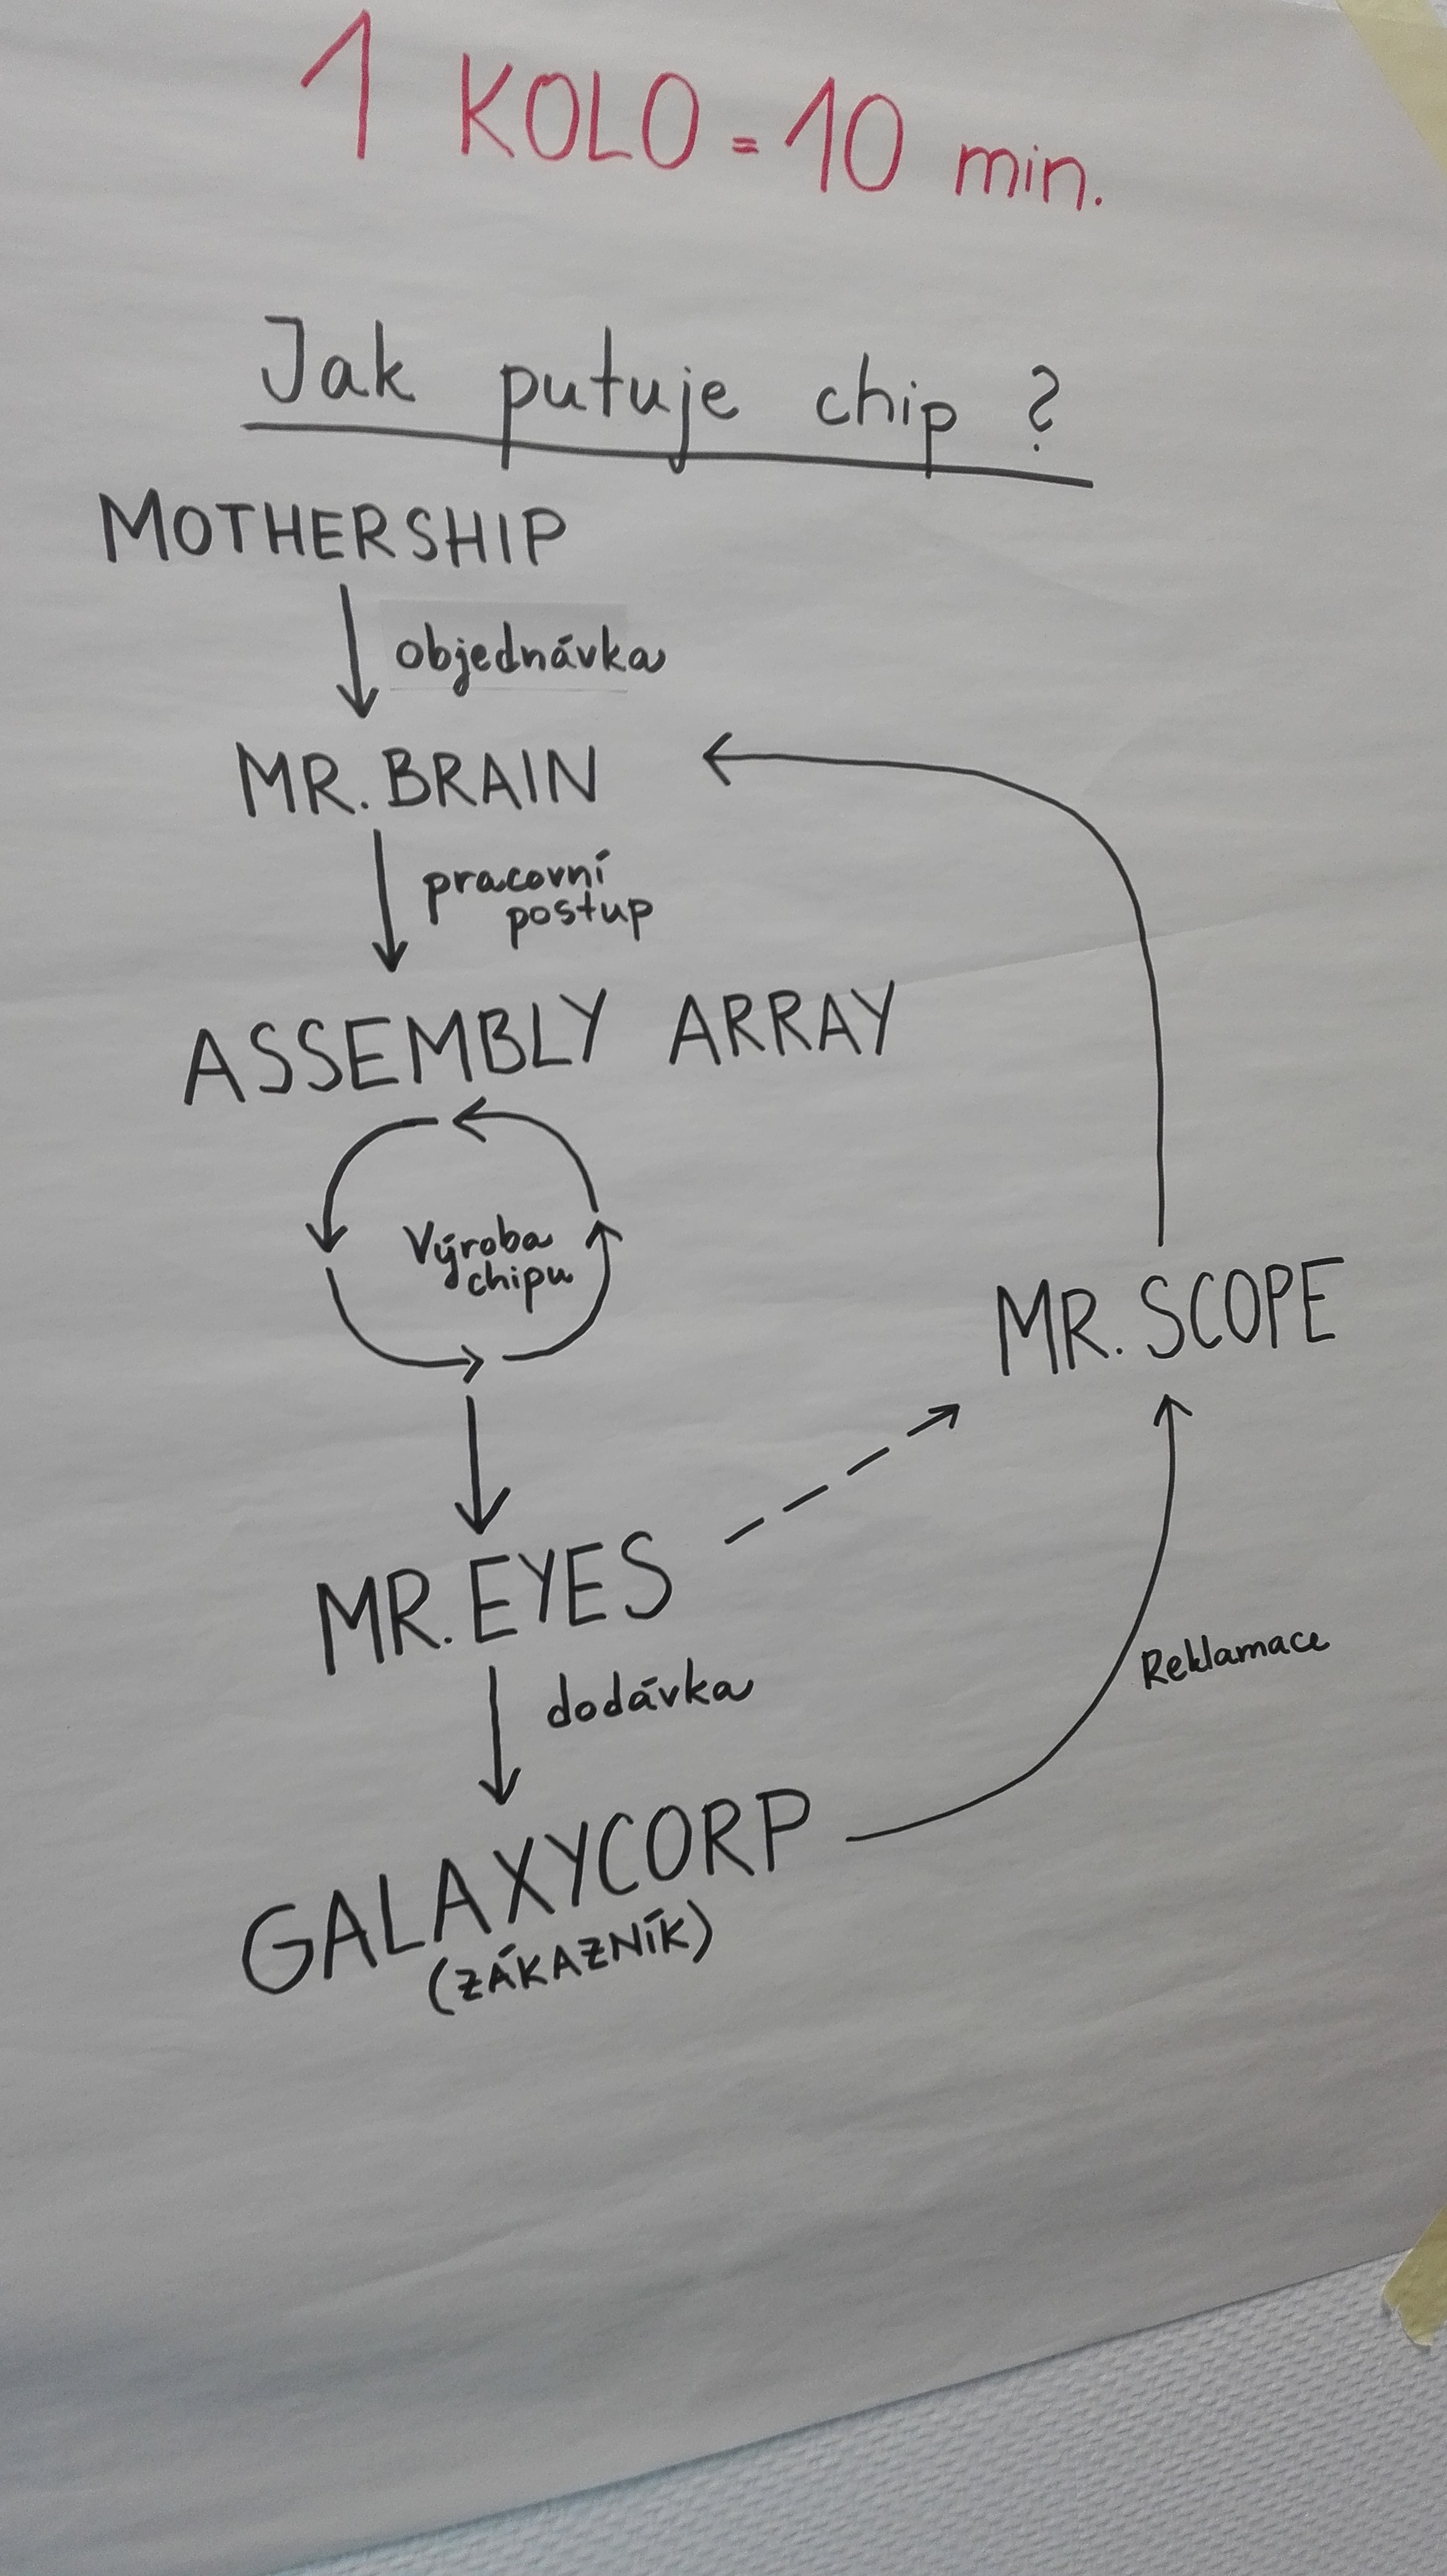 1 KOLO = 10 min.
Jak putuje chip ?
MOTHERSHIP
objednávka
MR. BRAIN
pracovní
postup
ASSEMBLY ARRAY
Výroba
chipu
MR. SCOPE
MR. EYES
Reklamace
dodávka
GALAXYCORP
(ZÁKAZNÍK)